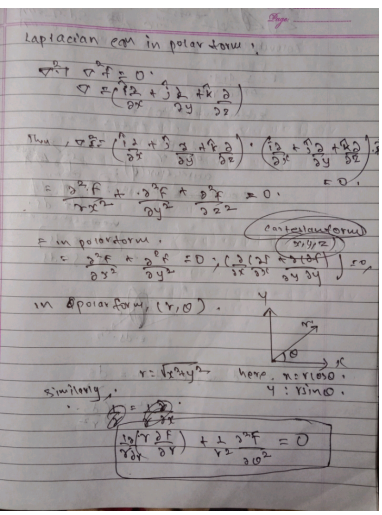 Page
Laplacian eqn in polar form :
∇² f = 0 .
∇ = (î ∂/∂x + ĵ ∂/∂y + k̂ ∂/∂z)
Then, ∇²f = (î ∂/∂x + ĵ ∂/∂y + k̂ ∂/∂z) · (î ∂/∂x + ĵ ∂/∂y + k̂ ∂/∂z) f
= 0 .
= ∂²f/∂x² + ∂²f/∂y² + ∂²f/∂z² = 0 .
cartesian form
(x,y,z)
= in polar form .
= ∂²f/∂x² + ∂²f/∂y² = 0 ; (∂/∂x (∂f/∂x) + ∂/∂y (∂f/∂y)) = 0,
in polar form, (r, θ) .
y
r
θ
x
r = √x²+y² here, x = r cosθ .
similarly, y = r sinθ .
1/r ∂/∂r (r ∂f/∂r) + 1/r² ∂²f/∂θ² = 0